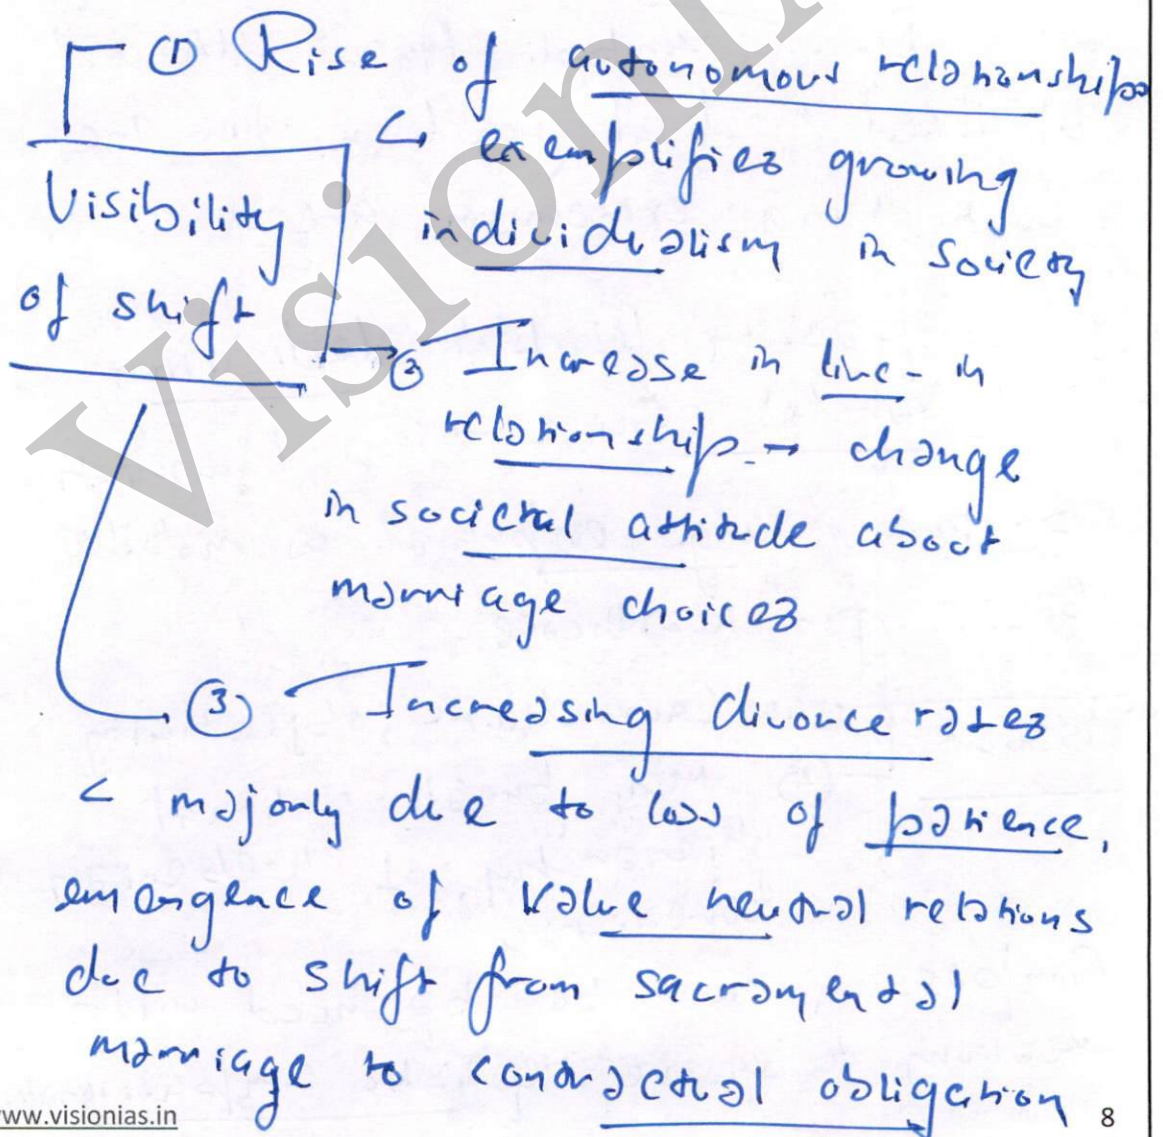 ① Rise of autonomous relationships
↳ exemplifies growing
individualism in society
Visibility
of shift
② Increase in live-in
relationship → change
in societal attitude about
marriage choices
③ Increasing divorce rates
< majorly due to loss of patience,
emergence of value neutral relations
due to shift from sacramental
marriage to contractual obligation
www.visionias.in
8
Vision